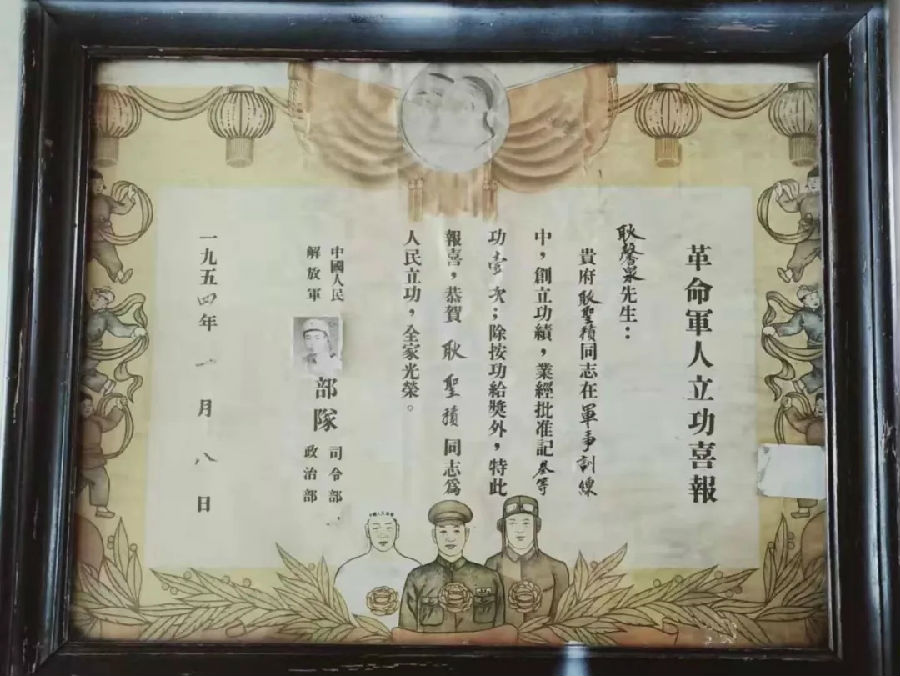 革命軍人立功喜報
耿馨泉先生：
貴府耿聖積同志在軍事訓練
中，創立功績，業經批准記叁等
功壹次；除按功給獎外，特此
報喜，恭賀耿聖積同志為
人民立功，全家光榮。
中國人民
解放軍
部隊
司令部
政治部
一九五四年一月八日